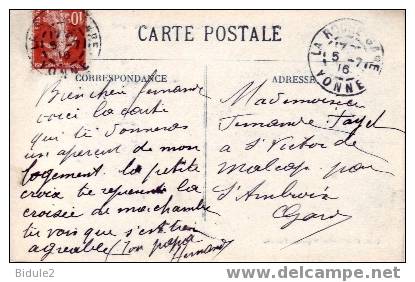 10
CARTE POSTALE
LA ROCHE
5-7
16
YONNE
CORRESPONDANCE
ADRESSE
Bien chère Fernande
voici la carte
qui te donneras
un apercut de mon
logement la petite
croix te represente la
croisée de ma chambre
tu vois que s'est bien
agreable ton papa
Fernand
Mademoiselle
Fernande Fayet
a St Victor de
Malcap par
St Ambroix
Gard
Bidule2
delcampe.net